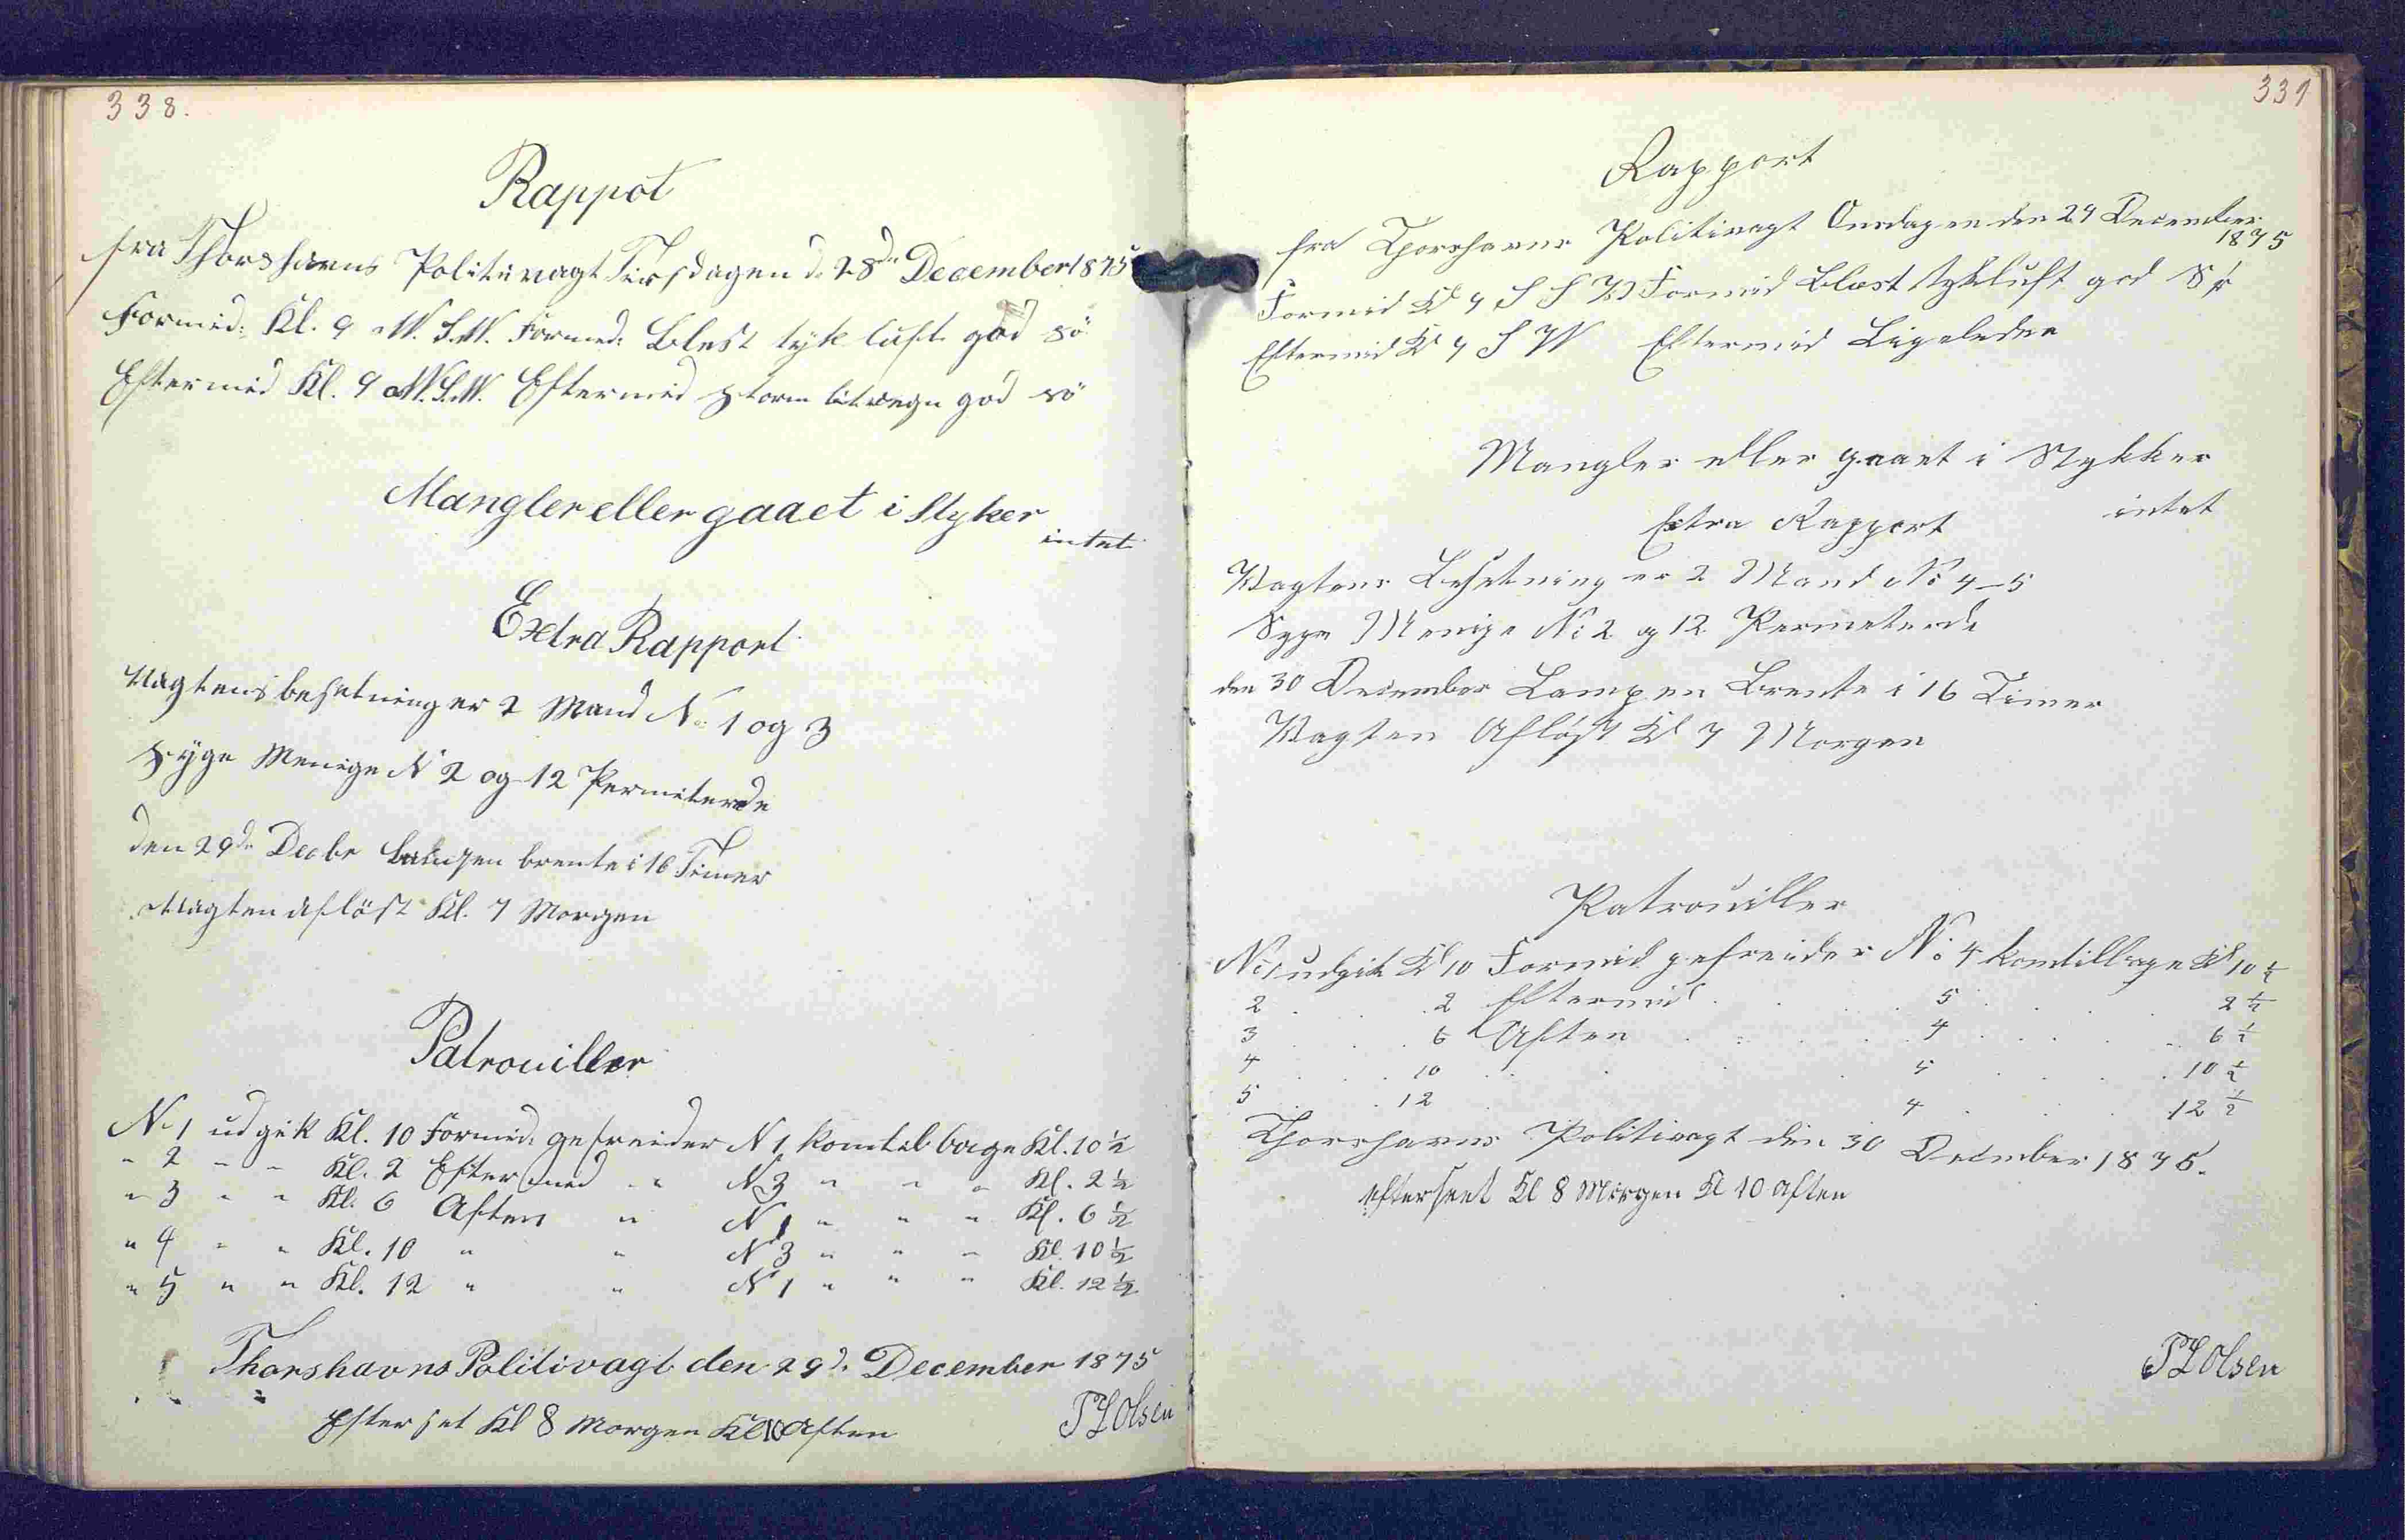 338.
Rappot
fra Thorshavns Politivagt Tirsdagen d. 28de December 1875
Formid: Kl. 9 W. S.W. Formed: Blest tyk luft god sö
Eftermid Kl. 9 W.S.W. Eftermid Storm litregn god sö
Mangler eller gaaet i Styker
intet
Extra Rapport
Vagtens besetning er 2 Mand No 1 og 3
Syge Menige N 2 og 12 Permiterede
den 29de Decbr Lampen brente i 16 Timer
Vagten aflöst Kl. 7 Morgen
Patrouiller
No 1 udgik Kl. 10 Formid: gefreider N 1 komtilbage Kl. 10 ½
" 2 " " Kl. 2 Eftermid " N 3 " " " Kl. 2 ½
" 3 " " Kl. 6 Aften " N 1 " " " Kl. 6 ½
" 4 " " Kl. 10 " " N 3 " " " Kl. 10 ½
" 5 " " Kl. 12 " " N 1 " " " Kl. 12 ½
Thorshavns Politivagt den 29d. December 1875
Efterset Kl 8 Morgen Kl 10 Aften
Olsen
339
Rapport
fra Thorshavns Politivagt Onsdagen den 29 December
1875
Formid Kl 9 S S W Formid Blæst tykluft god Sø
Eftermid Kl 9 S W Eftermid Ligeledes
Mangler eller gaaet i Stykker
intet
Extra Rapport
Vagtens Besetning er 2 Mand No 4-5
Syge Menige No 2 og 12 Permeterede
den 30 December Lampen Brente i 16 Timer
Vagten Afløst Kl 7 Morgen
Patrouiller
No 1 udgik Kl 10 Formid gefreider No 4 komtilbage Kl 10 ½
2 . . 2 Eftermid . . 5 . . . 2 ½
3 . . 6 Aften . . . 4 . . . 6 ½
4 . . 10 . . . 5 . . . 10 ½
5 . . 12 . . . 4 . . . 12 ½
Thorshavns Politivagt den 30 December 1875.
efterseet Kl 8 Morgen Kl 10 Aften
Olsen